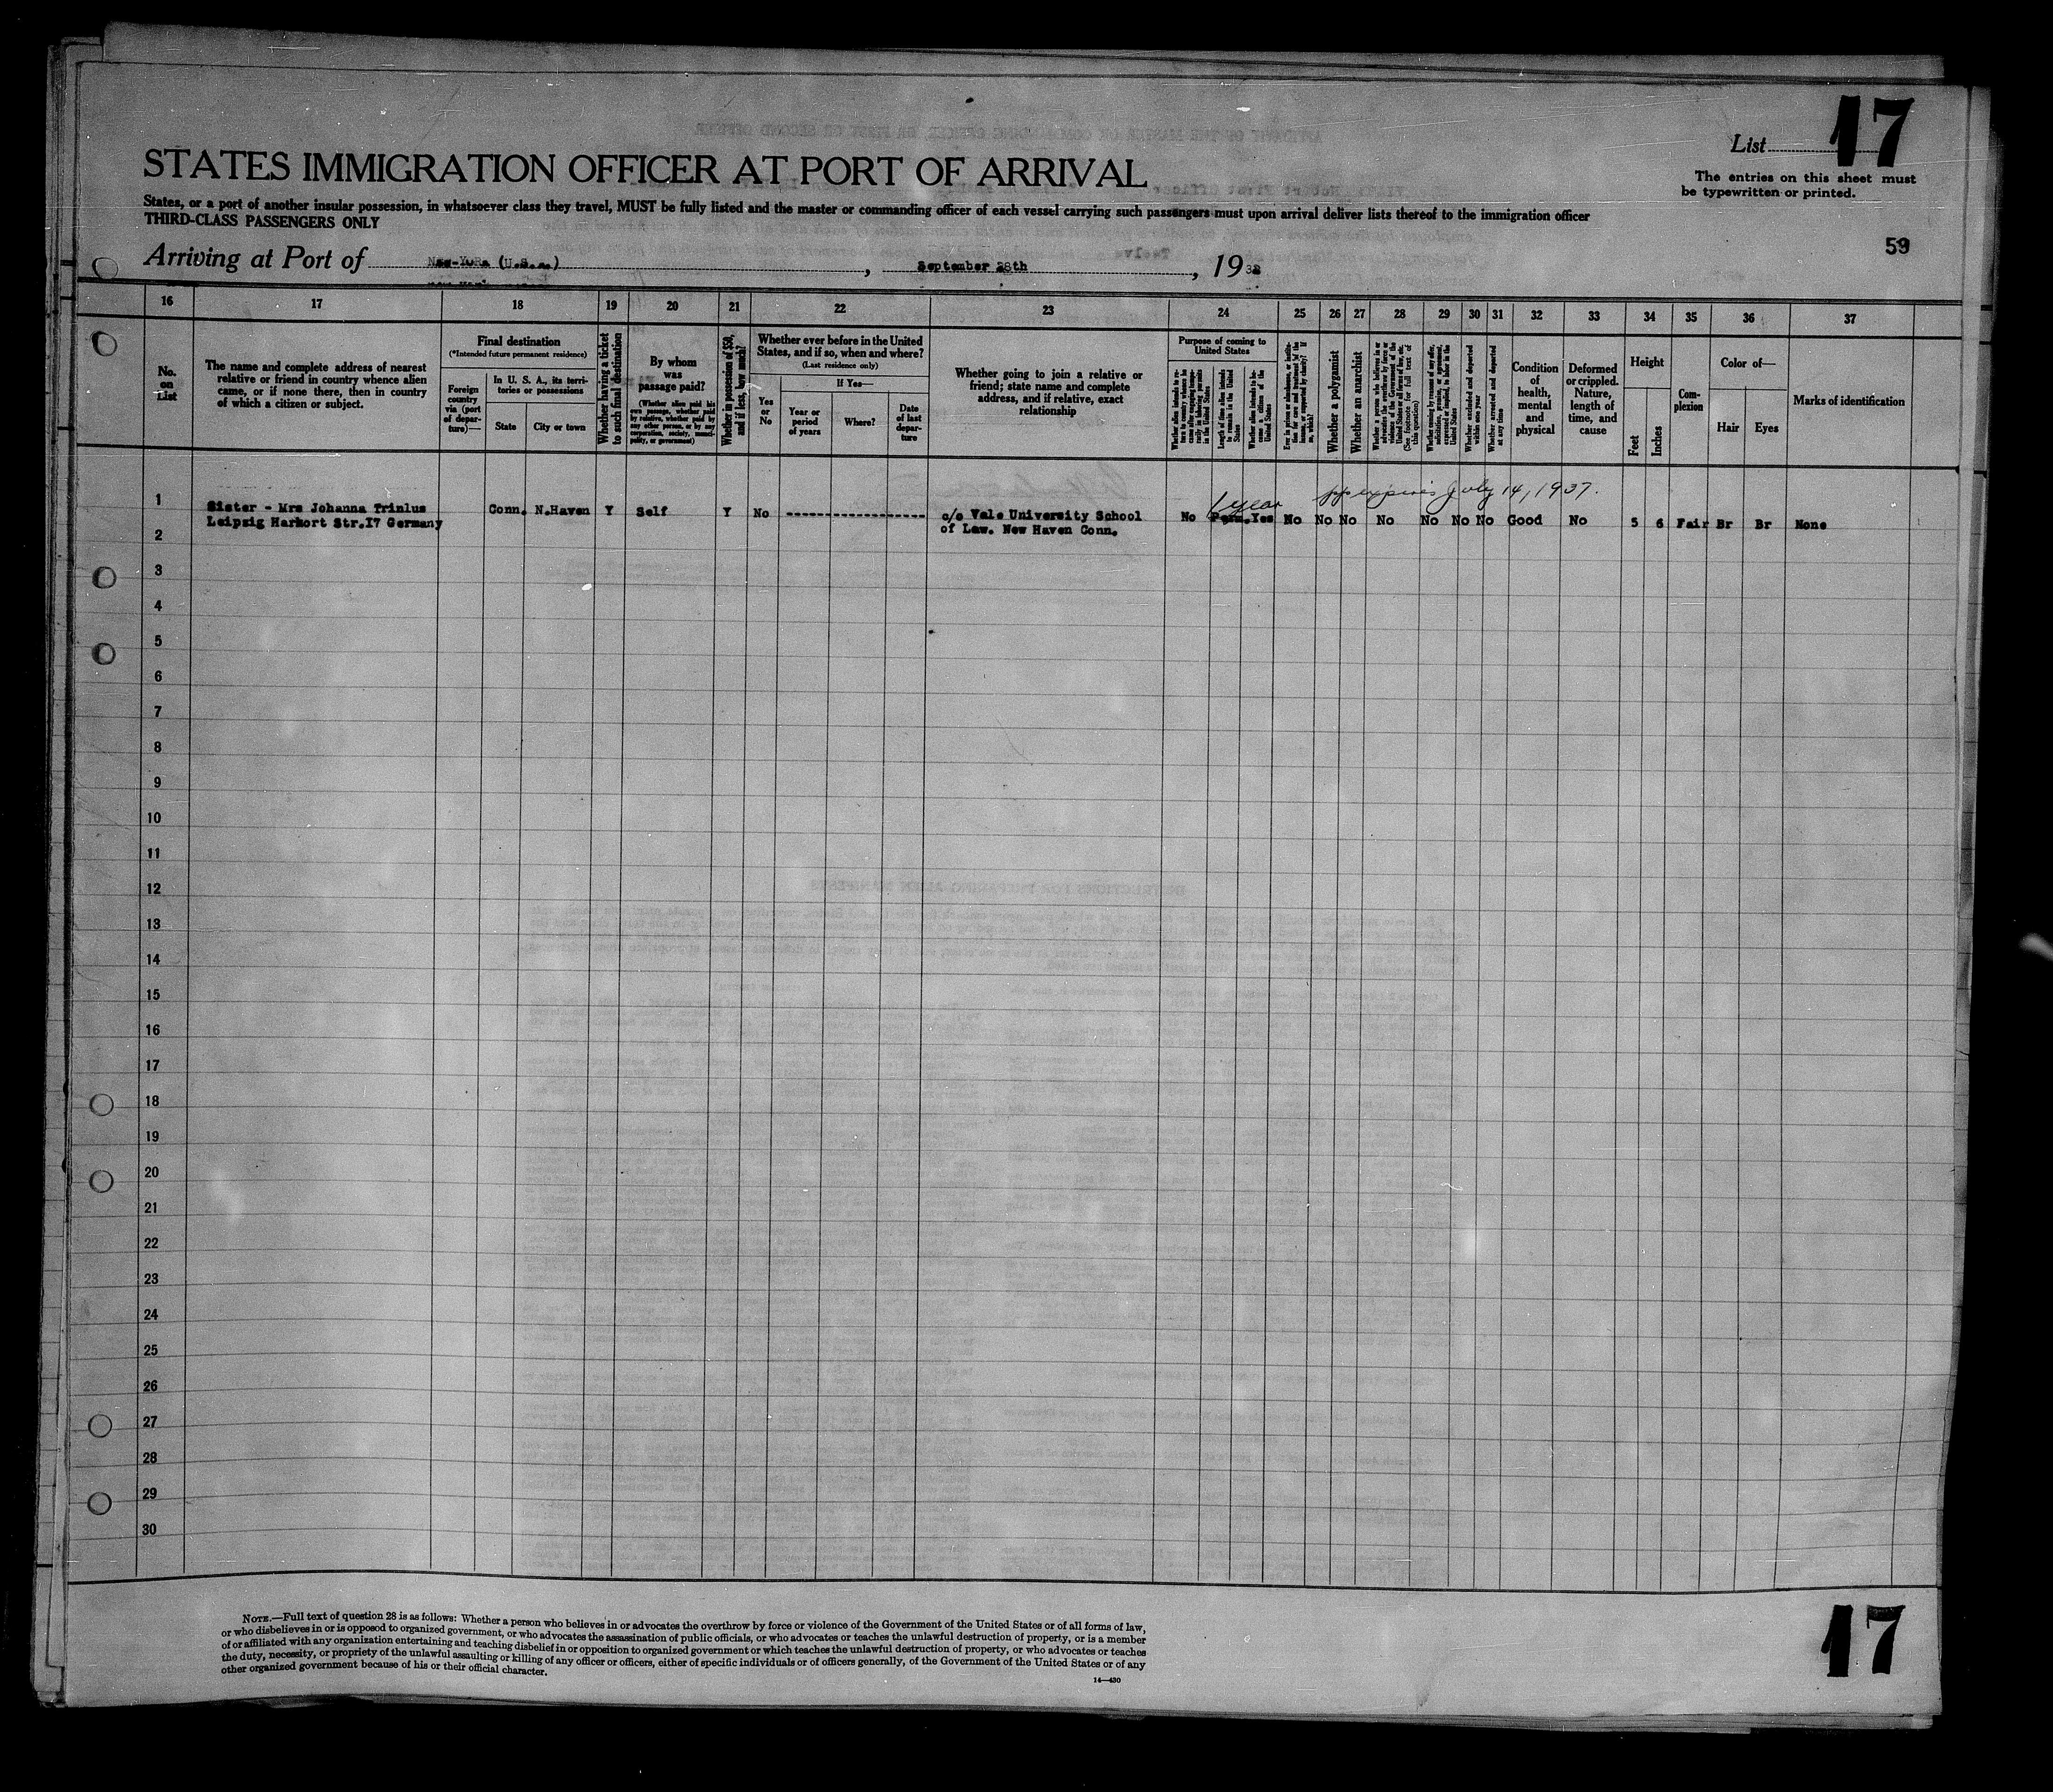 List 17
The entries on this sheet must
be typewritten or printed.
STATES IMMIGRATION OFFICER AT PORT OF ARRIVAL
States, or a port of another insular possession, in whatsoever class they travel, MUST be fully listed and the master or commanding officer of each vessel carrying such passengers must upon arrival deliver lists thereof to the immigration officer
THIRD-CLASS PASSENGERS ONLY
59
Arriving at Port of New-York (U.S.A.), September 28th, 1932
16 17 18 19 20 21 22 23 24 25 26 27 28 29 30 31 32 33 34 35 36 37
No.
on
List
The name and complete address of nearest
relative or friend in country whence alien
came, or if none there, then in country
of which a citizen or subject.
Final destination
(*Intended future permanent residence)
Foreign
country
via (port
of depar-
ture)—
In U. S. A., its terri-
tories or possessions
State
City or town
Whether having a ticket
to such final destination
By whom
was
passage paid?
(Whether alien paid his
own passage, whether paid
by relative, whether paid by
any other person, or by any
corporation, society, munici-
pality, or government)
Whether in possession of $50,
and if less, how much?
Whether ever before in the United
States, and if so, when and where?
(Last residence only)
was
Yes
or
No
If Yes—
Year or
period
of years
Where?
Date
of last
depar-
ture
Whether going to join a relative or
friend; state name and complete
address, and if relative, exact
relationship
Purpose of coming to
United States
Length of time alien intends
to remain in the United
States
Whether alien intends to be-
come a citizen of the
United States
Whether a polygamist
Whether an anarchist
(See footnote for full text of
this question)
Whether excluded and deported
within one year
Whether arrested and deported
at any time
Condition
of
health,
mental
and
physical
Deformed
or crippled.
Nature,
length of
time, and
cause
Height
Feet
Inches
Com-
plexion
Color of—
Hair
Eyes
Marks of identification
1 year pp expires July 14, 1937.
1 Sister - Mrs Johanna Trinlus Conn. N.Haven Y Self Y No c/o Yale University School No Perm. Yes No No No No No No No Good No 5 6 Fair Br Br None
Leipzig Harkort Str.I7 Germany of Law. New Haven Conn.
2
3
4
5
6
7
8
9
10
11
12
13
14
15
16
17
18
19
20
21
22
23
24
25
26
27
28
29
30
NOTE.—Full text of question 28 is as follows: Whether a person who believes in or advocates the overthrow by force or violence of the Government of the United States or of all forms of law,
or who disbelieves in or is opposed to organized government, or who advocates the assassination of public officials, or who advocates or teaches the unlawful destruction of property, or is a member
of or affiliated with any organization entertaining and teaching disbelief in or opposition to organized government or which teaches the unlawful destruction of property, or who advocates or teaches
the duty, necessity, or propriety of the unlawful assaulting or killing of any officer or officers, either of specific individuals or of officers generally, of the Government of the United States or of any
other organized government because of his or their official character.
14—430
17